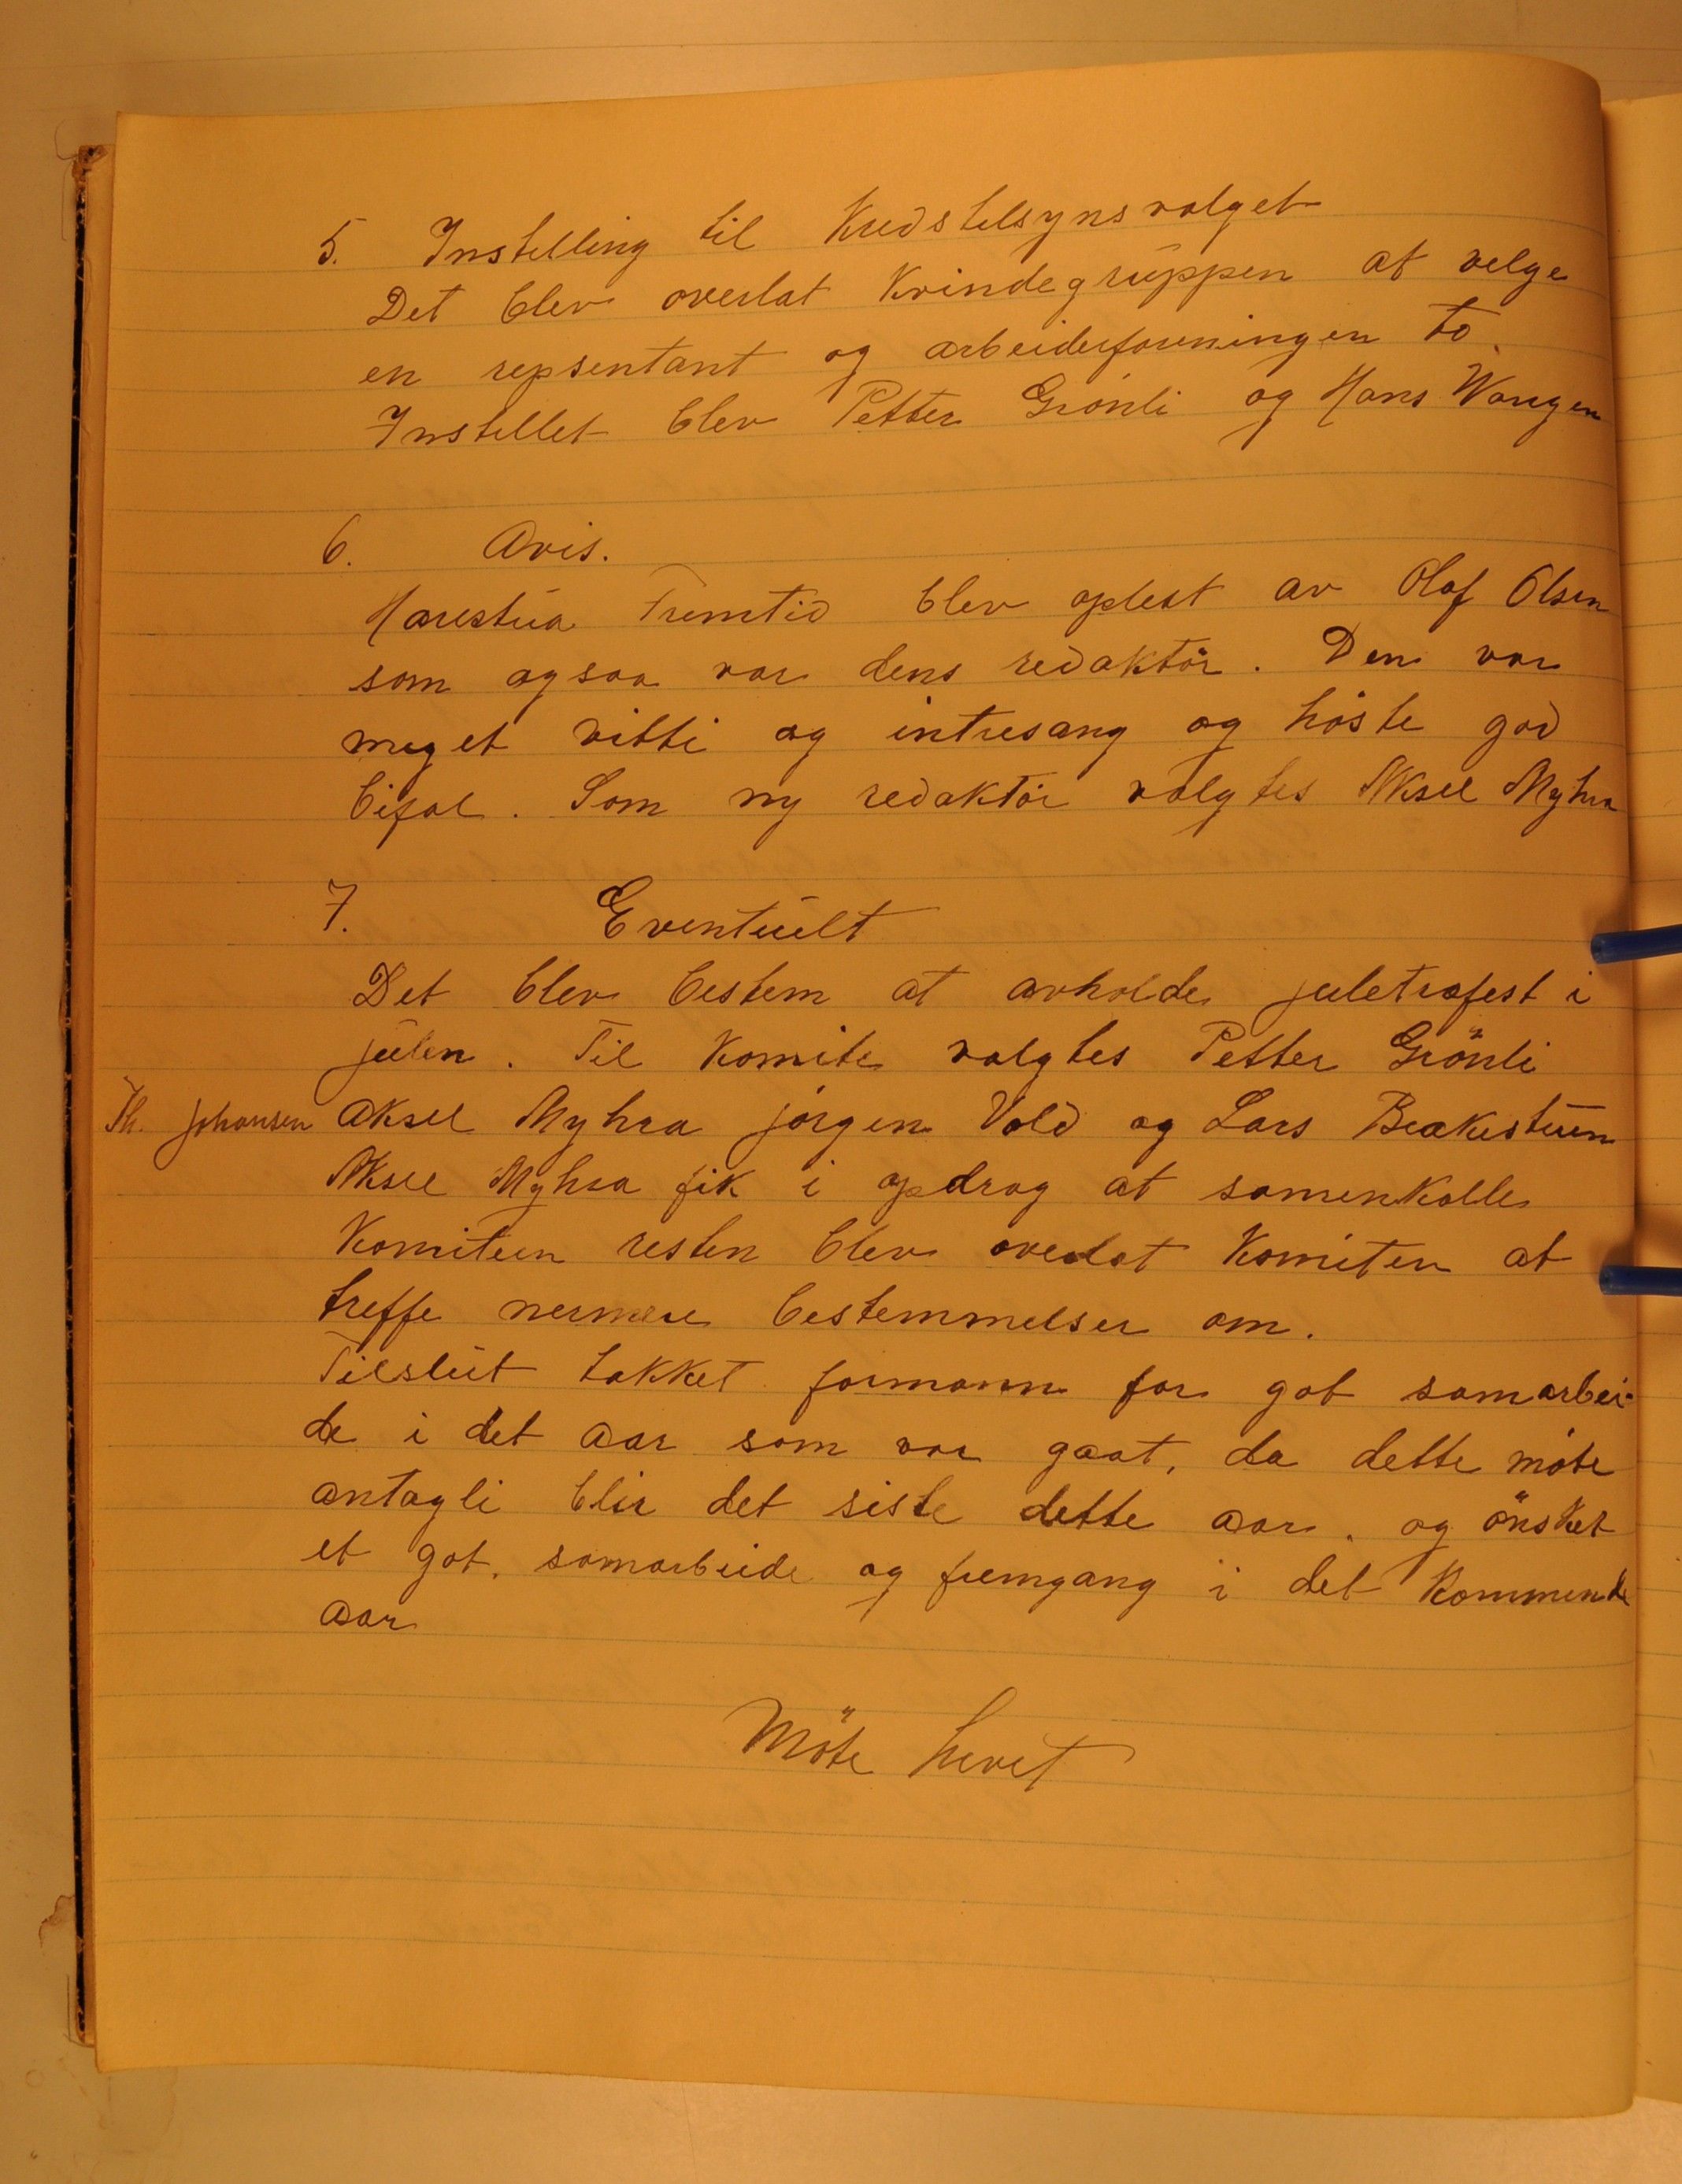 5. Instelling til Kredstilsynsvalget
Det blev overlat Kvindegruppen at velge
en repsentant og arbeiderforeningen to.
Instellet blev Petter Grönli og Hans Wangen
6. Avis.
Harestua Fremtid blev oplest av Olof Olsen
som ogsaa var dens redaktör. Den var
meget vitti og intresang og höste god
bifal. Som ny redaktör valgtes Aksel Myhra
7. Eventuelt
Det blev bestem at avholde juletrafest i
julen. Til Komite valgtes Petter Grönli
Th. Johansen Aksel Myhra jörgen Vold og Lars Brækestuen
Aksel Myhra fik i opdrag at samenkalle
Komiteen resten blev overlat Komiten at
treffe nermere bestemmelser om.
Tilslut takket formann for got samarbei-
de i det aar som var gaat, da dette möte
antagli blir det siste dette aar. og önsket
et got. samarbeide og fremgang i det Kommende
aar
Möte hevet